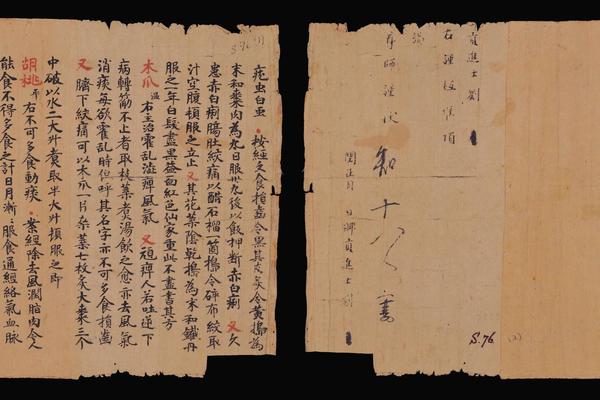 S.76
(2)
鄉貢進士劉
右謹祗候
謹
知十八人書
閏正月 日鄉貢進士劉
S.76 (1)
疣虫白虫 ・按經久食損齒令黑其皮炙令黃搗為
末和棗肉為丸日服卅丸後以飯押斷赤白痢 又久
患赤白痢腸肚絞痛以醋石榴一箇搗令碎布絞取
汁空腹頓服之立止 又其花葉陰乾搗為末和鐵丹
服之一年白髮盡黑益面紅色仙家重此不盡書其方
木瓜 溫 右主治霍亂澁痺風氣 又頑痺人若吐逆下
病轉筋不止者取枝葉煮湯飲之愈亦去風氣
消痰每欲霍亂時但呼其名字亦不可多食損齒
又 臍下絞痛可以木瓜一片桑葉七枚炙大棗三个
中破以水二大升煮取半大升頓服之即
胡桃 平 右不可多食動痰 ・案經除去風潤脂肉令人
能食不得多食之計日月漸 服食通經絡氣血脉